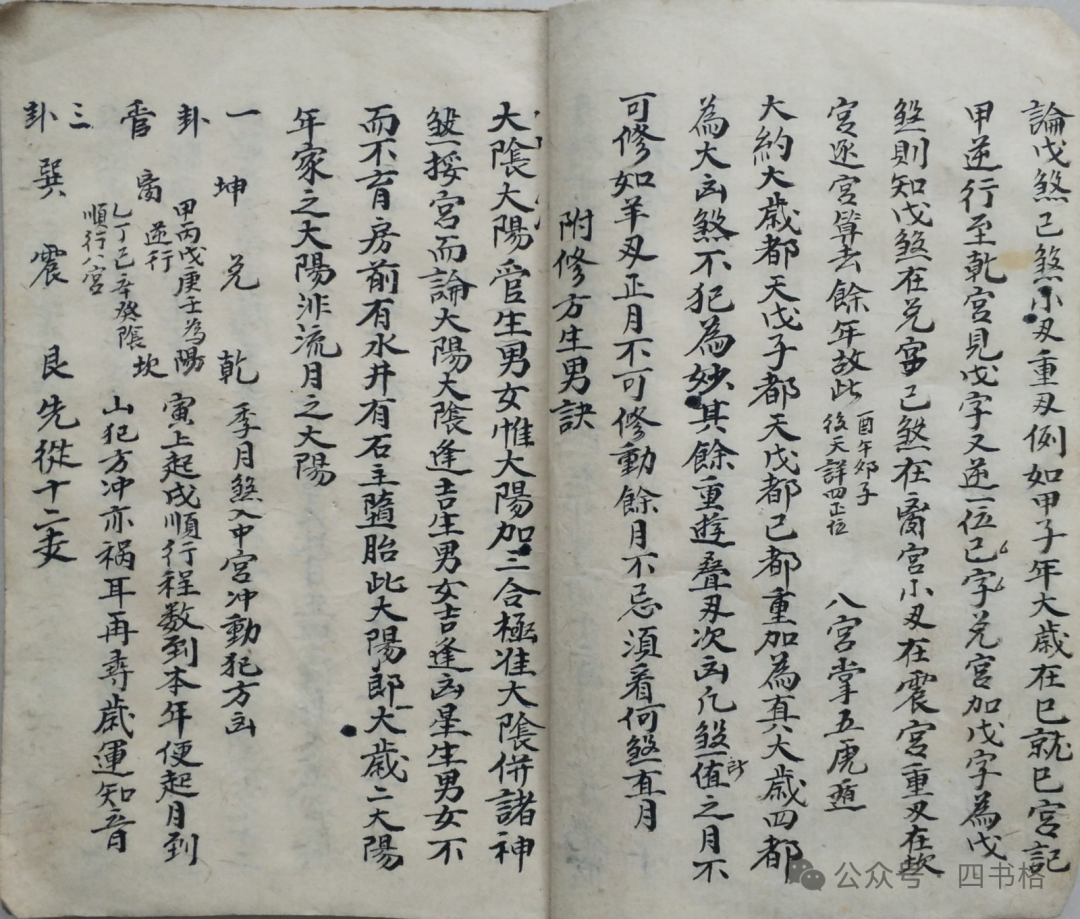 論戊煞己煞小刄重刄例如甲子年大歲在巳就巳宮記
甲逆行至乾宮見戊字又逆一位己字兑宮加戊字為戊
煞則知戊煞在兑宮己煞在离宮小刄在震宮重刄在坎
宮逐宮算去餘年故此 酉午卯子 後天詳四正位 八宮掌五虎遁
大約大歲都天戊子都天戊都己都重加為真大歲四都
為大凶煞不犯為妙其餘重遊疊刄次凶凢煞所值之月不
可修如羊刄正月不可修動餘月不忌須看何煞直月
附修方生男訣
大陰大陽管生男女惟大陽加三合極准大陰併諸神
煞挨宮而論大陽大陰逢吉生男女吉逢凶星生男女不
而不育房前有水井有石主墮胎此大陽郎大歲二大陽
年家之大陽非流月之大陽
一 坤 兑 乾 季月煞入中宮冲動犯方凶
卦 甲丙戊庚壬為陽 逆行 寅上起戌順行程数到本年便起月到
管 离 乙丁己辛癸陰 順行八宮 坎 山犯方冲亦祸耳再尋歲運知音
三
卦 巽 震 艮 先從十二支
公众号 四书格